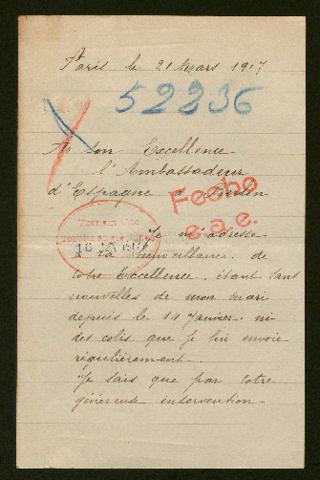 Paris le 21 Mars 1917
52236
A son Excellence
l'Ambassadeur
d'Espagne a Berlin
Fecho
e.a.e.
Je m'adresse
a la bienveillance de
votre Excellence étant sans
nouvelles de mon mari
depuis le 14 Janvier ni
des colis que je lui envoie
régulièrement.
Je sais que par votre
généreuse intervention